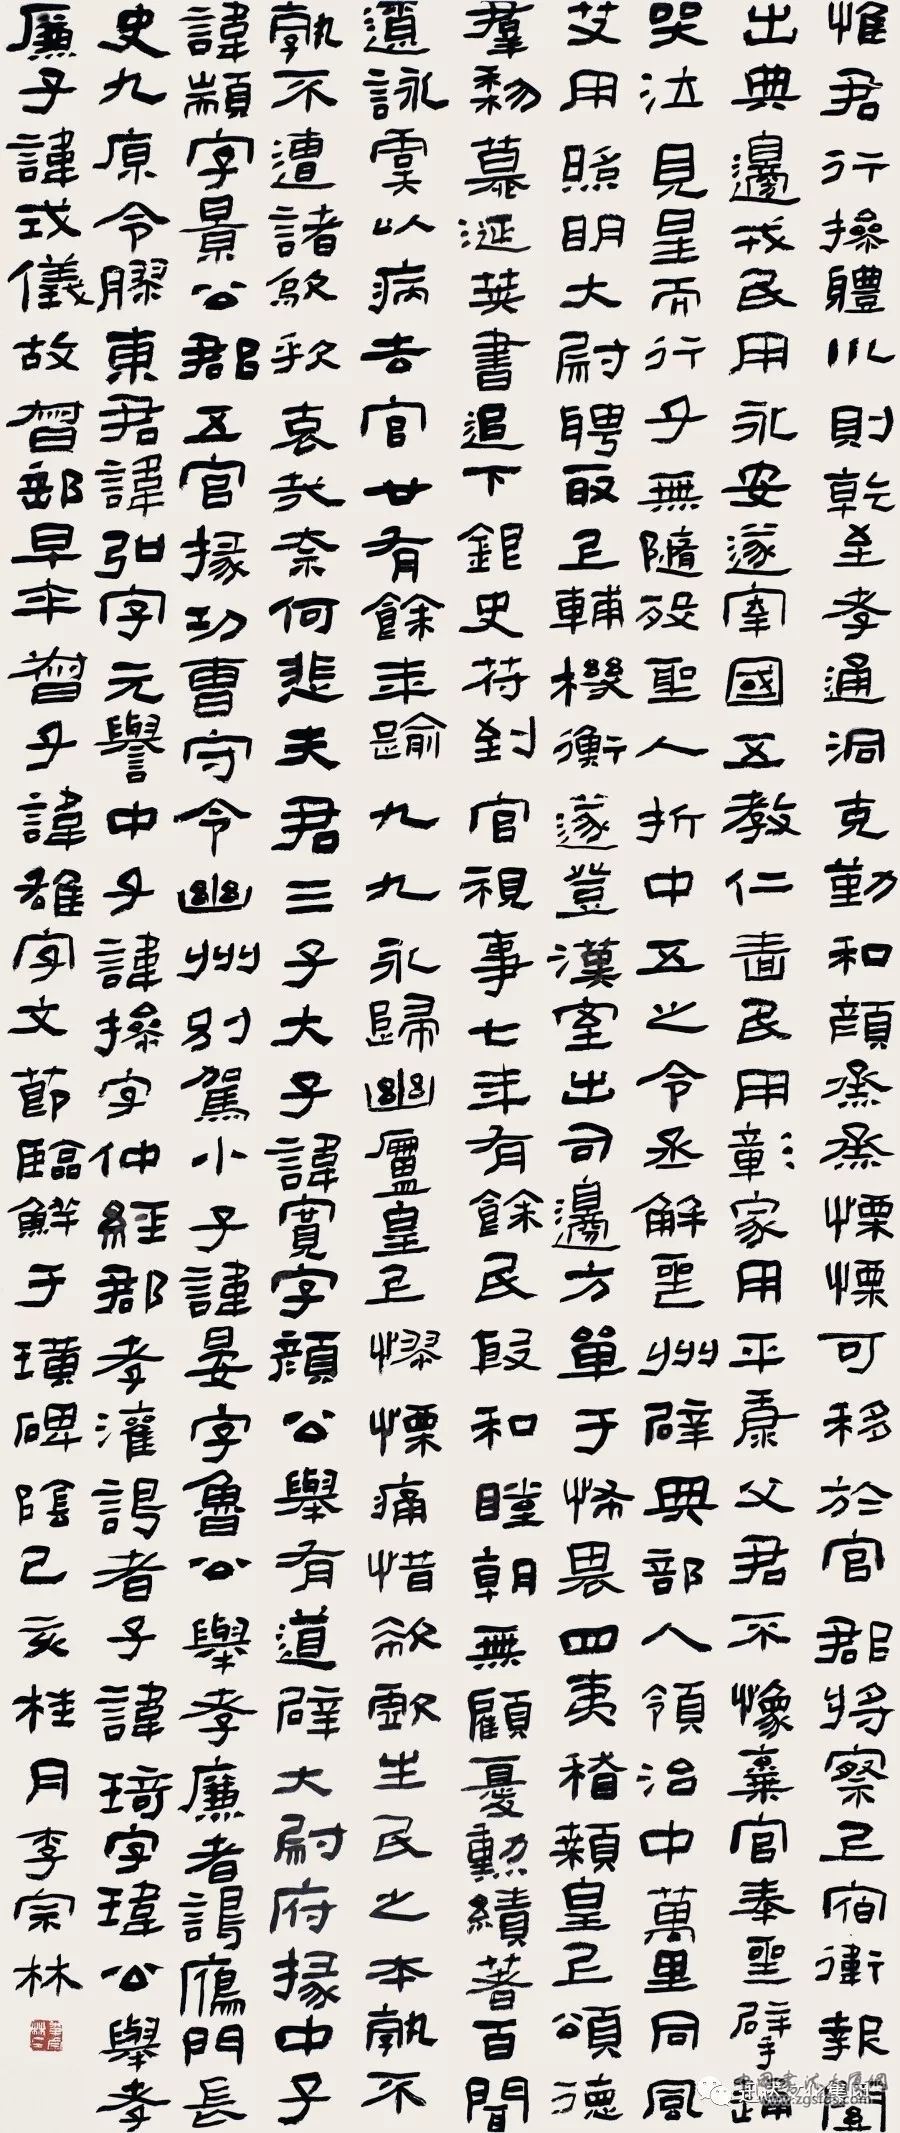 惟君行操體川則乾至孝通洞克勤和顏烝烝慄慄可移於官郡將察上宿衛報關
出典邊戎民用永安遂家國五教仁書民用彰家用平康父君不像棄官奉聖擗踊
哭泣見星而行子無隨歿聖人折中五之令丞解喪州辟典部入領治中萬里同風
艾用照明大尉聘取上輔機衡遂登漢室出司邊方單于怖畏四夷稽顙皇上頌德
群黎慕涎策書追下銀史符到官視事七年有餘民殷和睦朝無顧憂勳績著百間
遺詠虞以病去官廿有餘年踰九九永歸幽廬皇上憀慄痛惜欷歔生民之本孰不
孰不遭諸欷歔哀哉奈何悲夫君三子大子諱寬字顏公舉有道辟大尉府掾中子
諱顓字景公郡五官掾功曹守令幽州別駕小子諱晏字魯公舉孝廉者謁雁門長
史九原令膠東君諱弘字元譽中子諱操字仲經郡孝灌謁者子諱琦字瑋公舉孝
廉子諱或儀故督郵早卒督子諱雄字文節臨鮮于璜碑陰己亥桂月李宗林
www.zgsfds.com